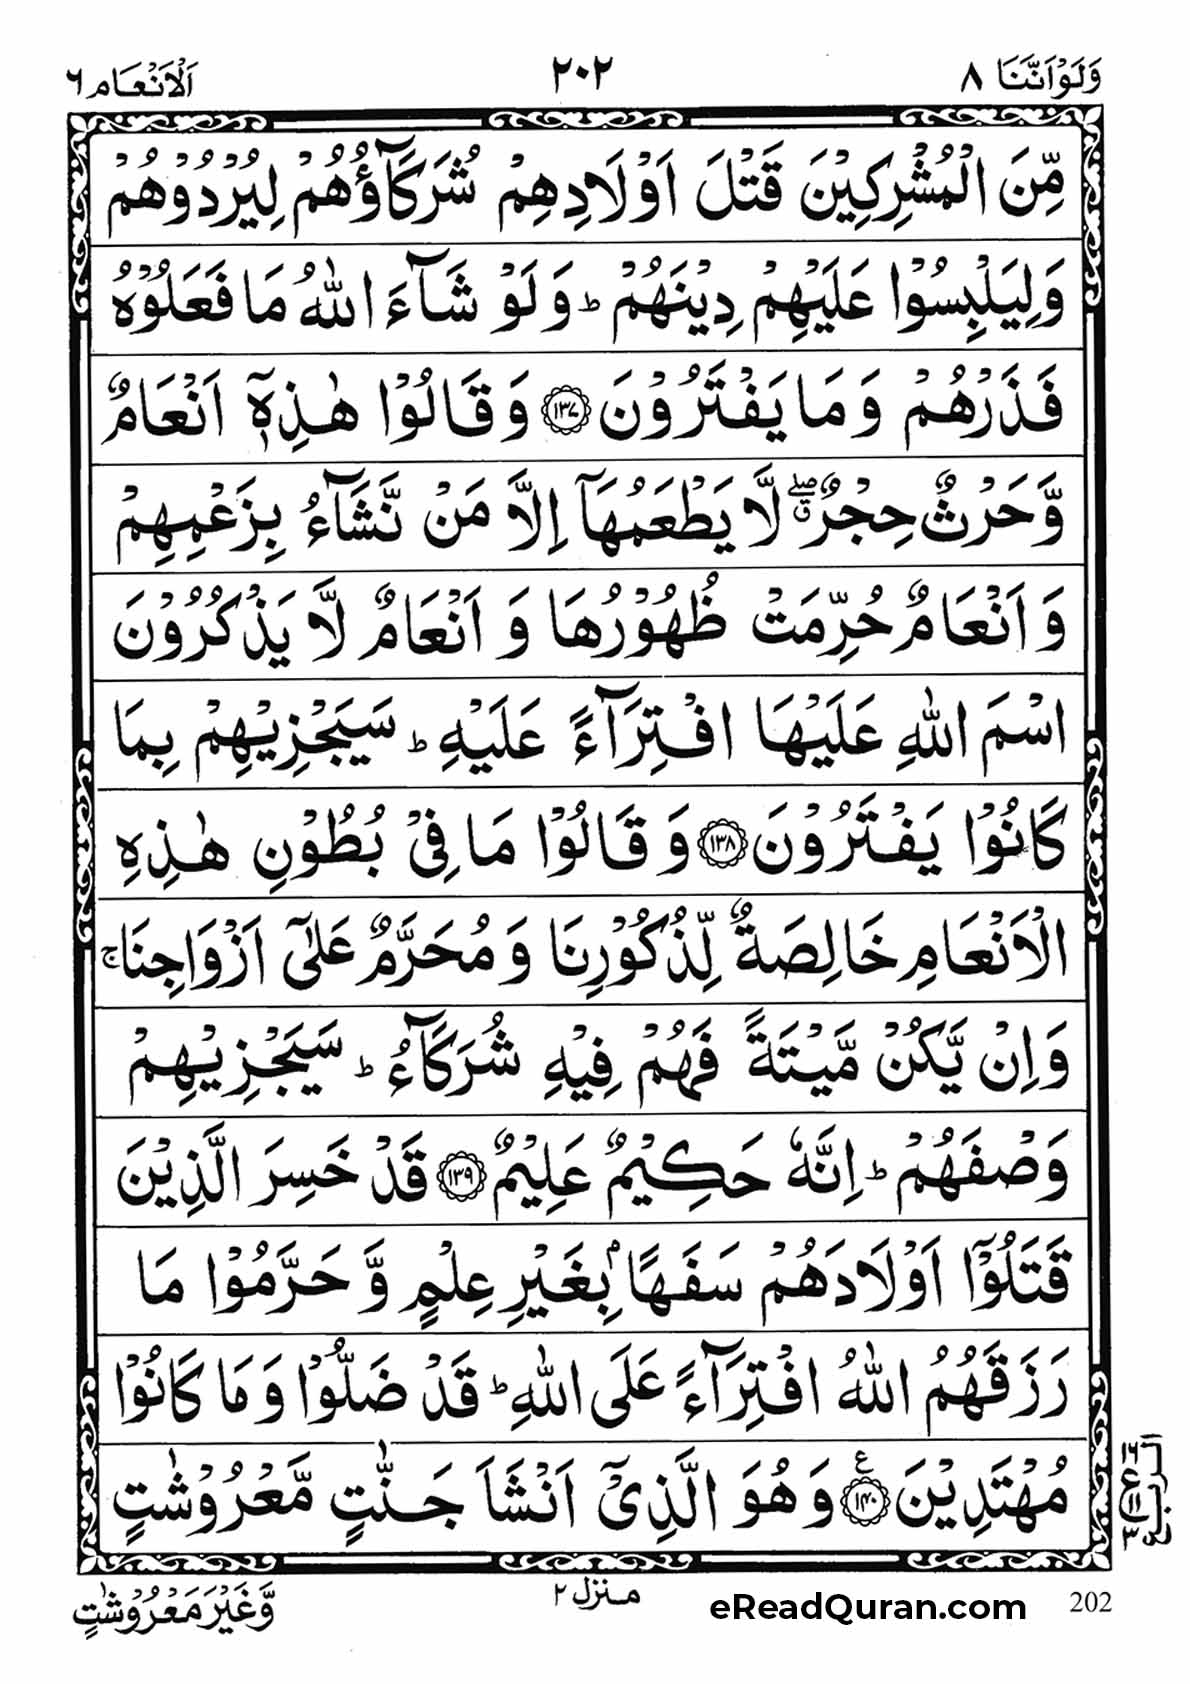 وَلَوْاَنَّنَا ٨
٢٠٢
اَلْاَنْعَام ٦
مِّنَ الْمُشْرِكِيْنَ قَتْلَ اَوْلَادِهِمْ شُرَكَآؤُهُمْ لِيُرْدُوْهُمْ
وَلِيَلْبِسُوْا عَلَيْهِمْ دِيْنَهُمْ ؕ وَلَوْ شَآءَ اللّٰهُ مَا فَعَلُوْهُ
فَذَرْهُمْ وَمَا يَفْتَرُوْنَ ﴿١٣٧﴾ وَقَالُوْا هٰذِهٖۤ اَنْعَامٌ
وَّحَرْثٌ حِجْرٌ ۖۗ لَّا يَطْعَمُهَاۤ اِلَّا مَنْ نَّشَآءُ بِزَعْمِهِمْ
وَاَنْعَامٌ حُرِّمَتْ ظُهُوْرُهَا وَاَنْعَامٌ لَّا يَذْكُرُوْنَ
اسْمَ اللّٰهِ عَلَيْهَا افْتِرَآءً عَلَيْهِ ؕ سَيَجْزِيْهِمْ بِمَا
كَانُوْا يَفْتَرُوْنَ ﴿١٣٨﴾ وَقَالُوْا مَا فِيْ بُطُوْنِ هٰذِهِ
الْاَنْعَامِ خَالِصَةٌ لِّذُكُوْرِنَا وَمُحَرَّمٌ عَلٰۤى اَزْوَاجِنَا ۚ
وَاِنْ يَّكُنْ مَّيْتَةً فَهُمْ فِيْهِ شُرَكَآءُ ؕ سَيَجْزِيْهِمْ
وَصْفَهُمْ ؕ اِنَّهٗ حَكِيْمٌ عَلِيْمٌ ﴿١٣٩﴾ قَدْ خَسِرَ الَّذِيْنَ
قَتَلُوْۤا اَوْلَادَهُمْ سَفَهًۢا بِغَيْرِ عِلْمٍ وَّحَرَّمُوْا مَا
رَزَقَهُمُ اللّٰهُ افْتِرَآءً عَلَى اللّٰهِ ؕ قَدْ ضَلُّوْا وَمَا كَانُوْا
مُهْتَدِيْنَ ﴿١٤٠﴾ ع وَهُوَ الَّذِيْۤ اَنْشَاَ جَنّٰتٍ مَّعْرُوْشٰتٍ
الربع
١٦
ع
١١
٣
وَّغَيْرَ مَعْرُوْشٰتٍ
منزل ٢
eReadQuran.com
202